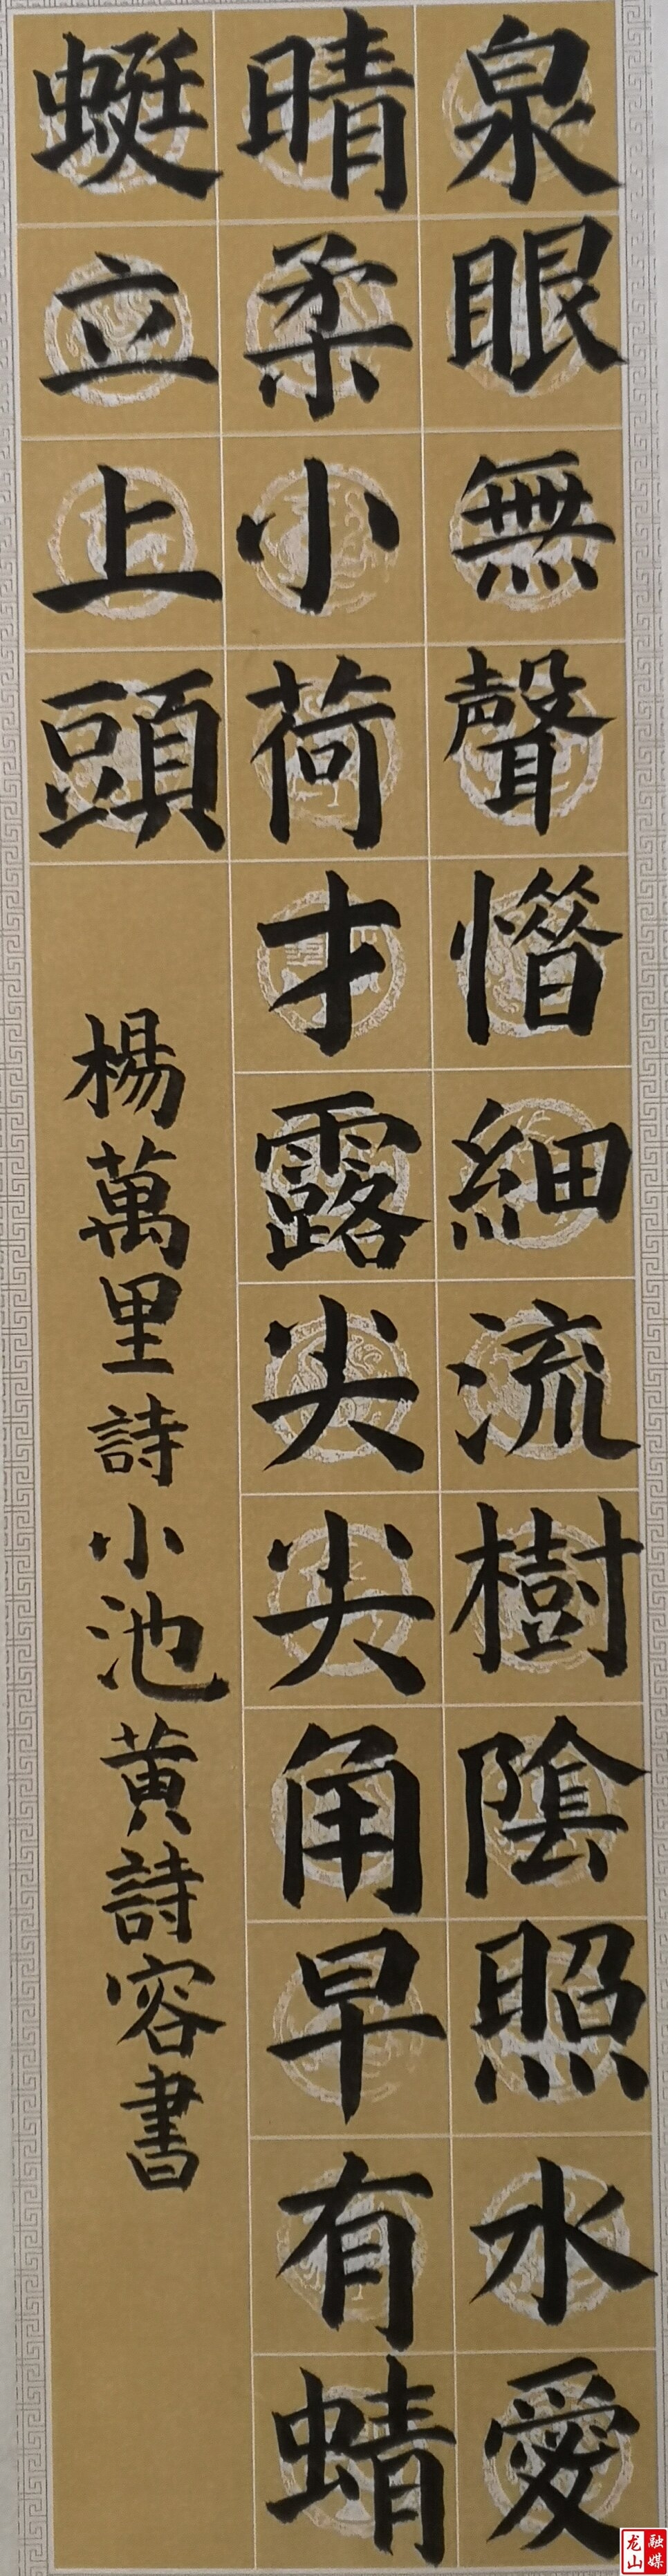 泉眼無聲惜細流樹陰照水愛
晴柔小荷才露尖尖角早有蜻
蜓立上頭
楊萬里詩小池黄詩容書
龙山融媒